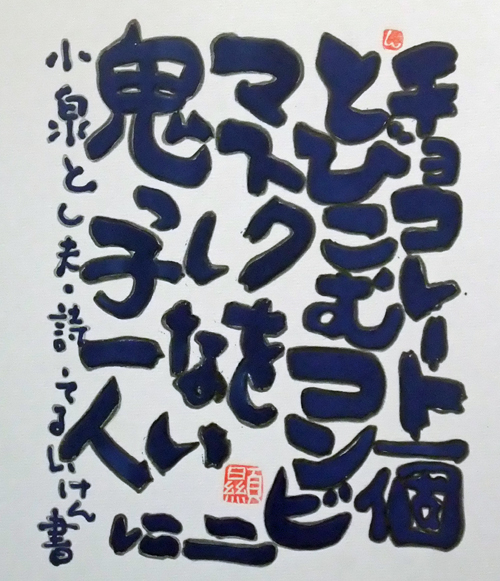 ん
チョコレート一個
とびこむコンビニに
マスクを
しない
鬼っ子一人
小泉とし夫・詩・てるいけん書